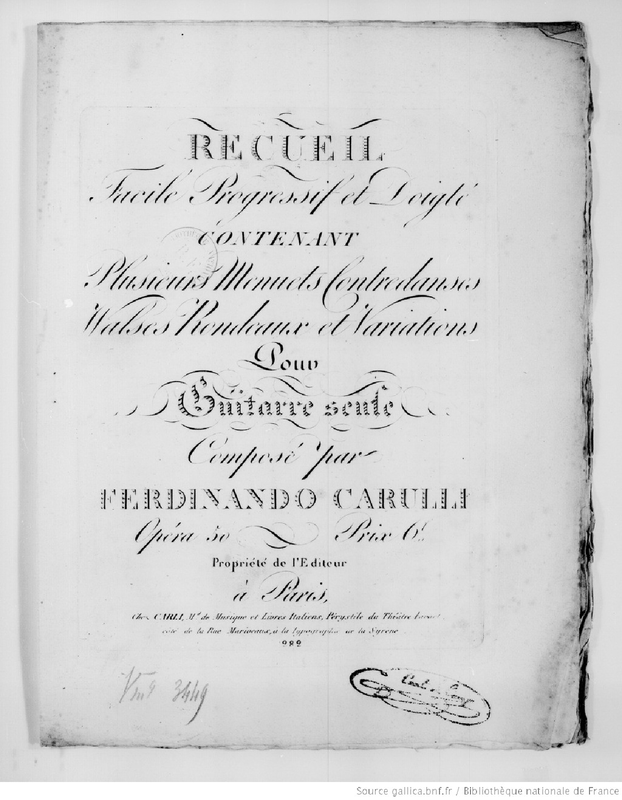 RECUEIL
Facile Progressif et Doigté
CONTENANT
Plusieurs Menuets Contredanses
Walses Rondeaux et Variations
Pour
Guitarre seule
Composé par
FERDINANDO CARULLI
Opéra 50 Prix 6f.
Propriété de l'Editeur
à Paris,
Chez CARLI, Md. de Musique et Livres Italiens, Pérystile du Théâtre Favart
coté de la Rue Marivaux, a la typographie de la Syrene
999
Vm9 3449
Source gallica.bnf.fr / Bibliothèque nationale de France